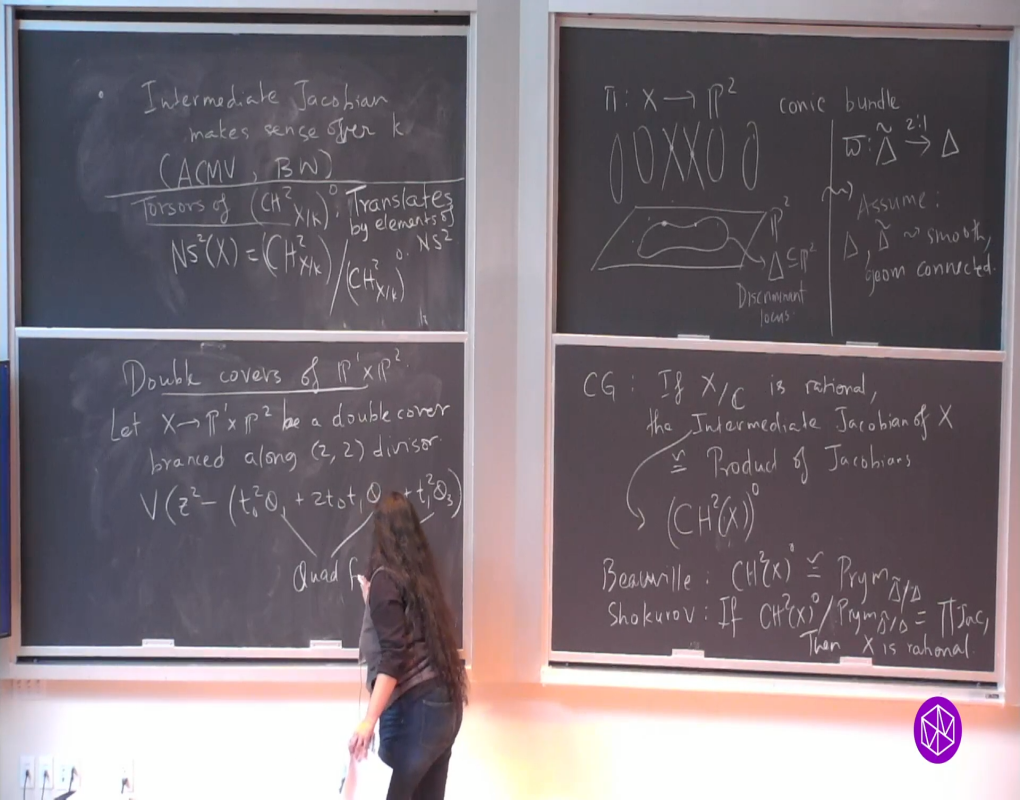 • Intermediate Jacobian
makes sense over k
(ACMV, BW)
Torsors of (CH²_{X/k})⁰: Translates
by elements of
NS²
NS²(X) = (CH²_{X/k}) / (CH²_{X/k})⁰
k
Double covers of ℙ¹×ℙ².
Let X → ℙ¹×ℙ² be a double cover
branced along (2,2) divisor.
V(z² − (t₀²Q₁ + 2t₀t₁Q + t₁²Q₃)
Quad
π: X → ℙ²
conic bundle
ℙ²
Δ ⊆ ℙ²
Discriminant
locus.
ϖ: Δ̃ →^{2:1} Δ
⇝ Assume:
Δ, Δ̃ ~ smooth,
geom connected.
CG: If X/ℂ is rational,
the Intermediate Jacobian of X
≅ Product of Jacobians
(CH²(X))⁰
Beauville: CH²(X)⁰ ≅ Prym_{Δ̃/Δ}
Shokurov: If CH²(X)⁰/Prym_{Δ̃/Δ} = ∏Jac,
Then X is rational.